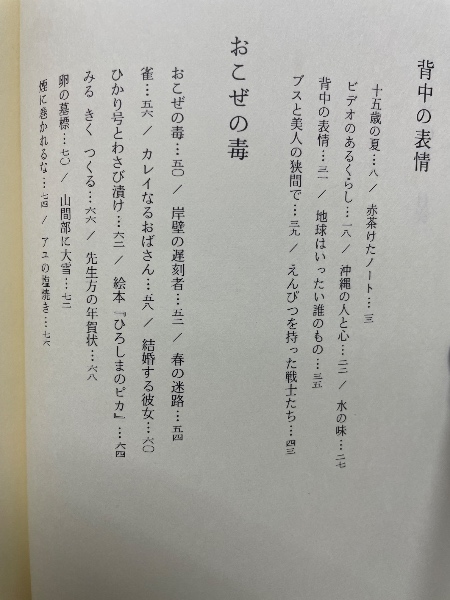 背中の表情
十五歳の夏…八 / 赤茶けたノート…三
ビデオのあるくらし…一八 / 沖縄の人と心…二二 / 水の味…二七
背中の表情…三一 / 地球はいったい誰のもの…三五
ブスと美人の狭間で…三九 / えんぴつを持った戦士たち…四三
おこぜの毒
おこぜの毒…五〇 / 岸壁の遅刻者…五二 / 春の迷路…五四
雀…五六 / カレイなるおばさん…五八 / 結婚する彼女…六〇
ひかり号とわさび漬け…六二 / 絵本『ひろしまのピカ』…六四
みる きく つくる…六六 / 先生方の年賀状…六八
卵の墓標…七〇 / 山間部に大雪…七二
煙に巻かれるな…七四 / アユの塩焼き…七六